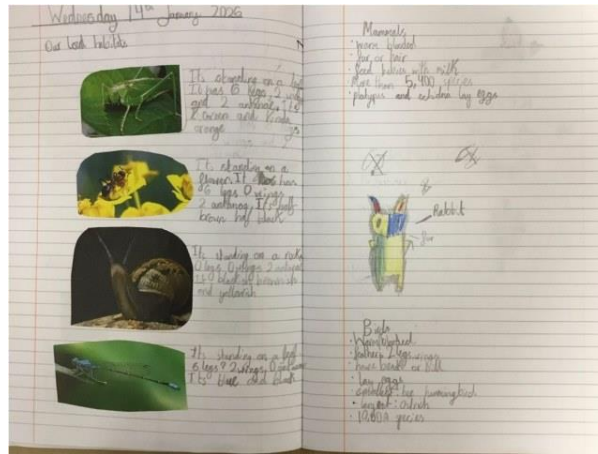 Wednesday 14th January 2026
Our local habitats
It's standing on a leaf
It has 6 legs, 2 wings
and 2 antennas. It's
green and kinda
orange
It's standing on a
flower. It has
6 legs 0 wings
2 antennas, It's half
brown half black
It's standing on a rock
0 legs 0 wings 2
It's blackish brownish
and yellowish
It's standing on a leaf
6 legs? 2 wings, 0
It's blue and black
Mammals
• warm blooded
• fur or hair
• feed babies with milk
More than 5,400 species
• platypus and echidna lay eggs
Rabbit
fur
Birds
• Warm blooded
• feathers 2 legs wings
• have beak or bill
• lay eggs
• smallest: bee hummingbird
• largest: ostrich
• 10,000 species